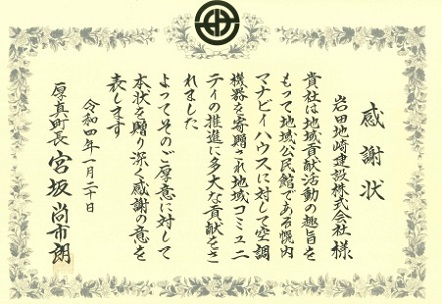 感謝状
岩田地崎建設株式会社 様
貴社は地域貢献活動の趣旨を
もって地域公民館である幌内
マナビィハウスに対して空調
機器を寄贈され地域コミュニ
ティの推進に多大な貢献をさ
れました
よってそのご厚意に対して
本状を贈り深く感謝の意を
表します
令和四年一月二十日
厚真町長 宮坂尚市朗